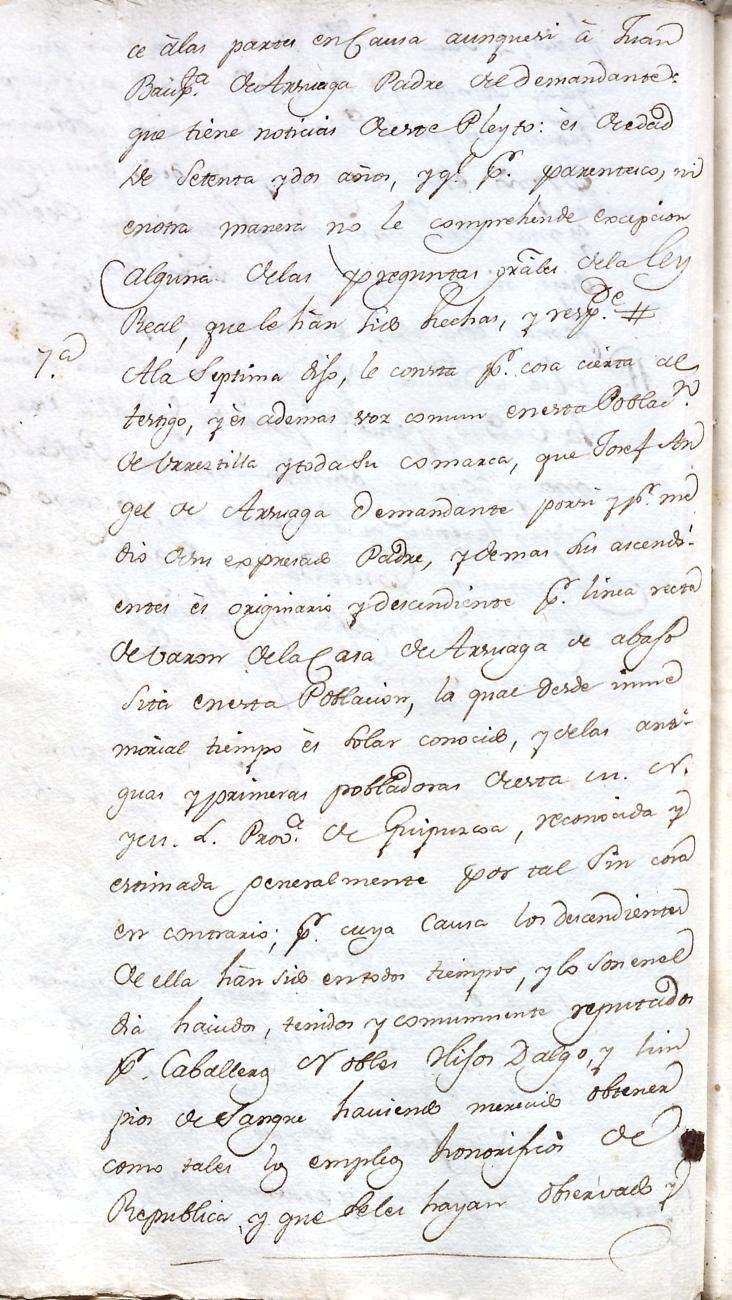 ce â las partes en Causa aunque si â Juan
Baup.ta de Arruaga Padre del demandante:
que tiene noticias de este Pleyto: ès de edad
de Setenta y dos años, y q.e p.r parentesco, ni
en otra manera no le comprehende excepcion
alguna de las preguntas grâles de la Ley
Real, que le hàn sido hechas, y resp.de #
7.a
A la Septima dijo, le consta p.r cosa cierta al
testigo, y ès ademas voz comun en esta Poblac.n
de Urrestilla y toda su comarca, que Josef An
gel de Arruaga demandante por si y p.r me
dio de su expresado Padre, y demas sus ascendi-
entes ès originario y descendiente p.r linea recta
de varon de la Casa de Arruaga de abajo
Sita en esta Poblacion, la qual desde inme
morial tiempo ès Solar conocido, y de las anti-
guas y primeras pobladoras de esta M. N.
y M. L. Prov.a de Guipuzcoa, reconocida y
estimada generalmente por tal Sin cosa
en contrario; p.r cuya Causa los descendientes
de ella hàn sido en todos tiempos, y lo son en el
dia haividos, tenidos y comunmente reputados
p.r Caballeros Nobles Hijos Dalgo, y lim
pios de Sangre haviendo merecido obtener
como tales los empleos honorificos de
Republica, y que se les hayan observado y